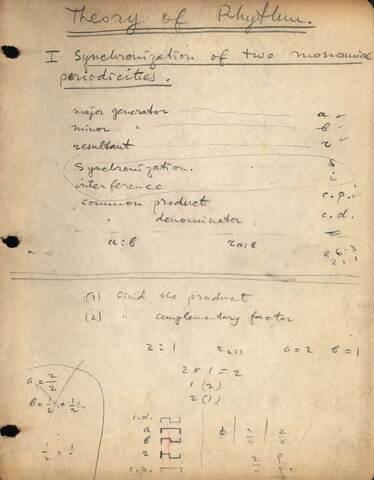 Theory of Rhythm.
I Synchronization of two monomial
periodicities.
major generator a
minor " b
resultant r
Synchronization. s
interference i
common product c.p.
" denominator c.d.
a:b ra:b
(1) Find the product
(2) " complementary factor
2:1 r2÷1 a=2 b=1
2 x 1 = 2
1 (2)
2 (1)
a = 2/2
b = 1/2 + 1/2
c.d.
a
b
r
c.p.